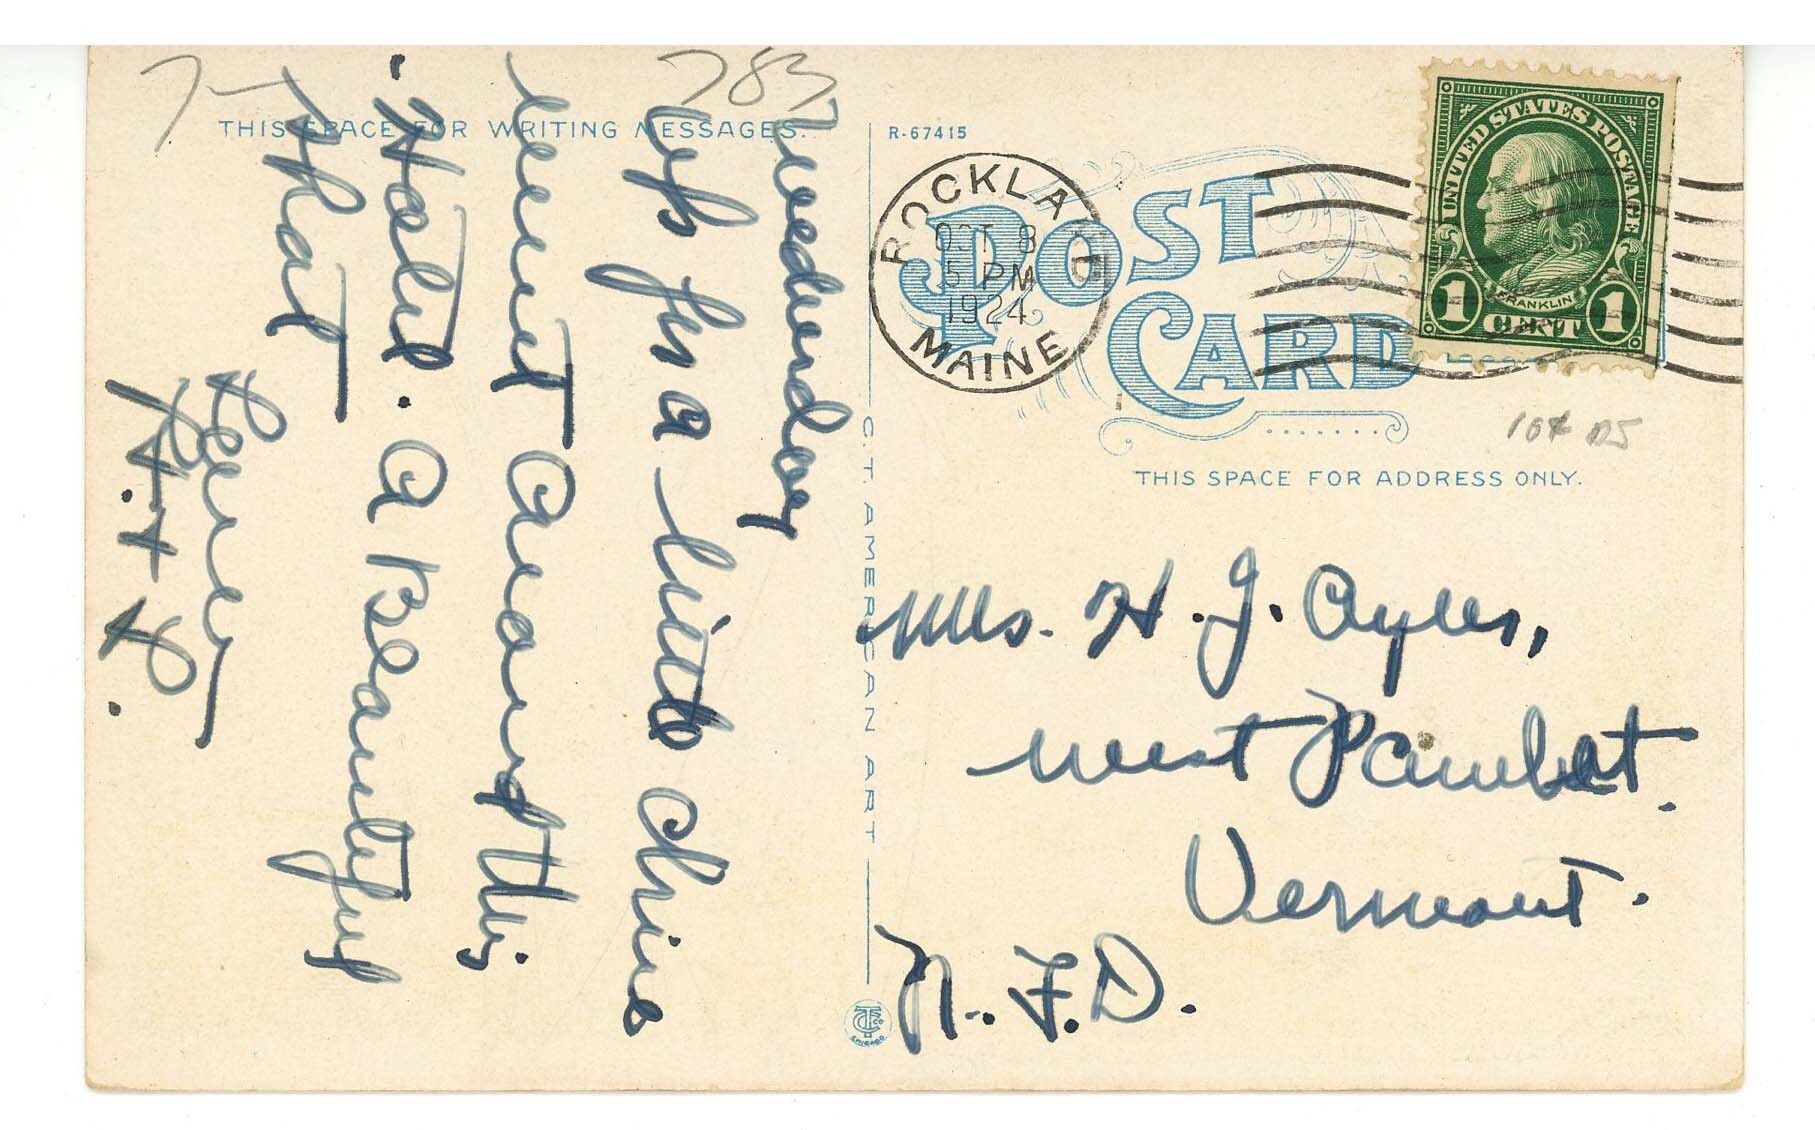 783
7-
THIS SPACE FOR WRITING MESSAGES.
R-67415
POST CARD
ROCKLAND
OCT 8
5 PM
1924
MAINE
UNITED STATES POSTAGE
FRANKLIN
1 CENT 1
10¢
THIS SPACE FOR ADDRESS ONLY.
Wednesday
Up for a little drive
went around this
Hotel. A Beautiful
spot
C.T. AMERICAN ART
CHICAGO
Mrs. H. J. Ayers,
West
Vermont.
R. F. D.